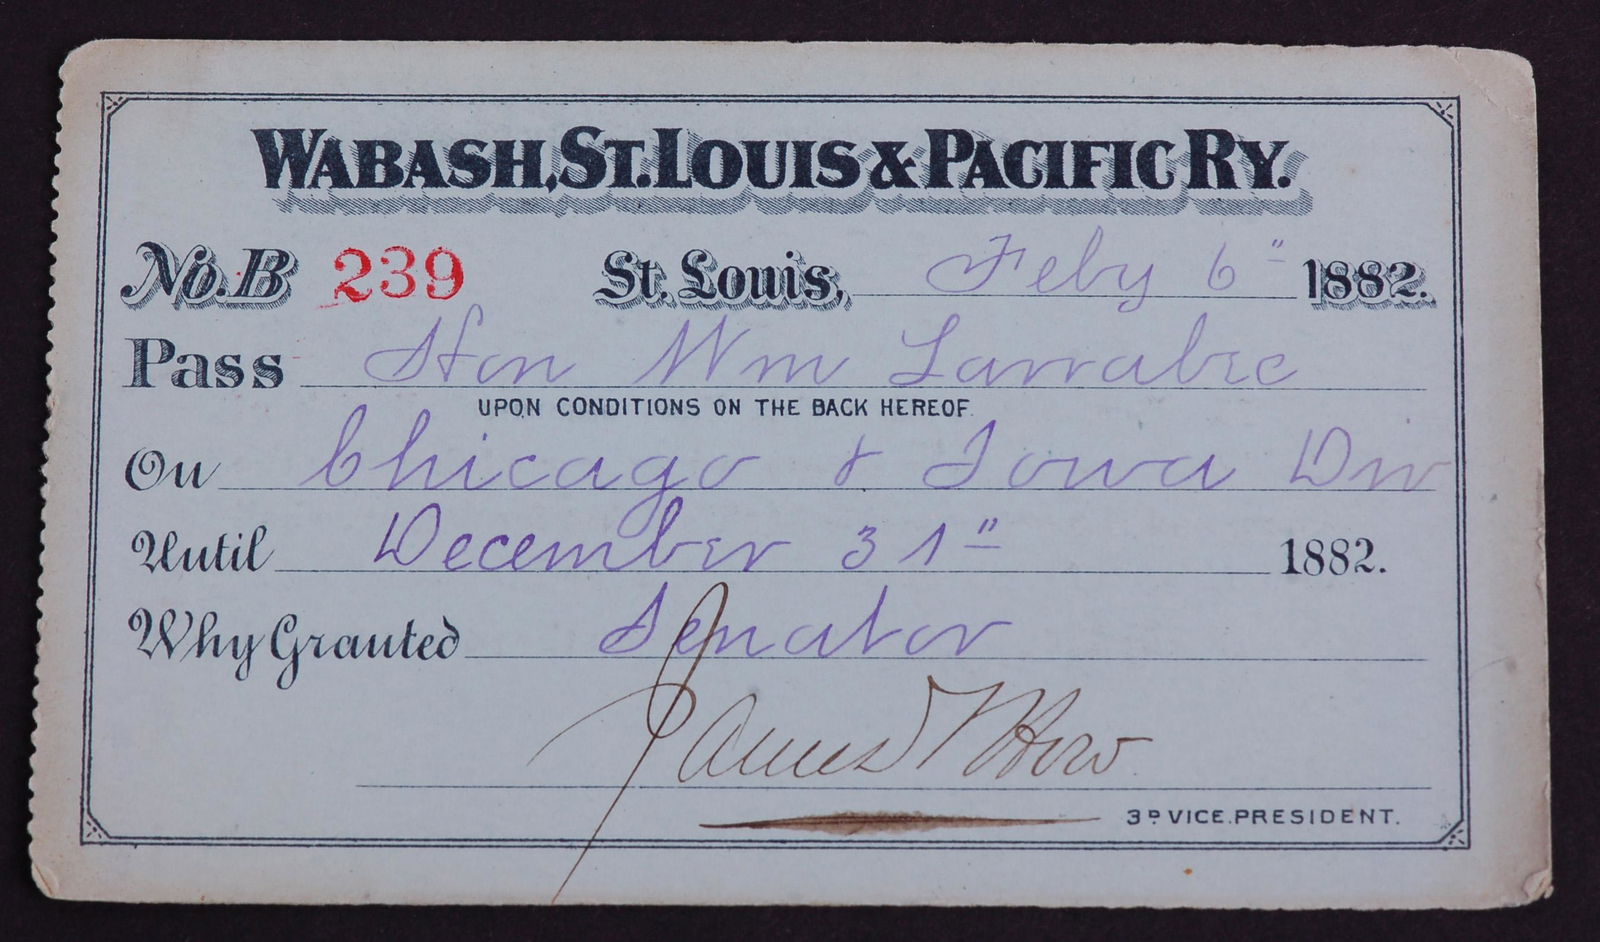 WABASH, ST. LOUIS & PACIFIC RY.
No. B 239 St. Louis, Feby 6" 1882.
Pass Hon Wm Larrabee
UPON CONDITIONS ON THE BACK HEREOF.
On Chicago & Iowa Div
Until December 31" 1882.
Why Granted Senator
James F How
3D VICE PRESIDENT.